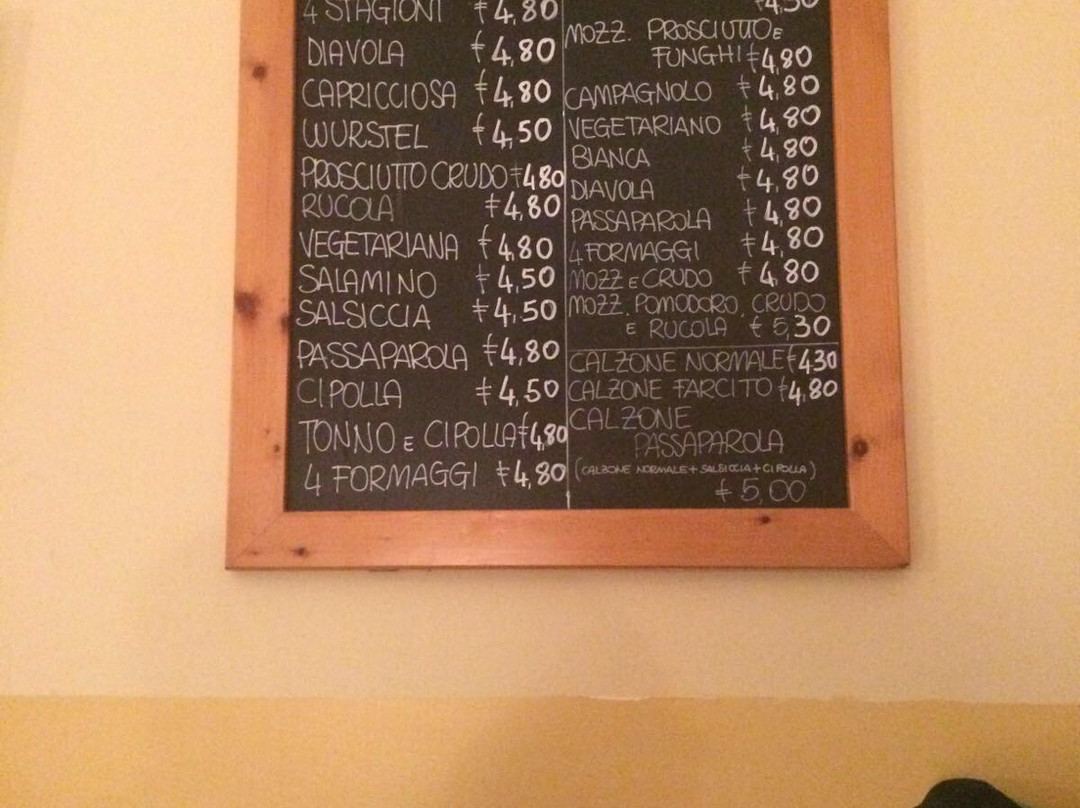 4 STAGIONI €4,80
DIAVOLA €4,80
CAPRICCIOSA €4,80
WURSTEL €4,50
PROSCIUTTO CRUDO €4,80
RUCOLA €4,80
VEGETARIANA €4,80
SALAMINO €4,50
SALSICCIA €4,50
PASSAPAROLA €4,80
CIPOLLA €4,50
TONNO E CIPOLLA €4,80
4 FORMAGGI €4,80
€4,50
MOZZ. PROSCIUTTO E
FUNGHI €4,80
CAMPAGNOLO €4,80
VEGETARIANO €4,80
BIANCA €4,80
DIAVOLA €4,80
PASSAPAROLA €4,80
4 FORMAGGI €4,80
MOZZ E CRUDO €4,80
MOZZ. POMODORO, CRUDO
E RUCOLA €5,30
CALZONE NORMALE €4,30
CALZONE FARCITO €4,80
CALZONE
PASSAPAROLA
(CALZONE NORMALE + SALSICCIA + CIPOLLA)
€5,00